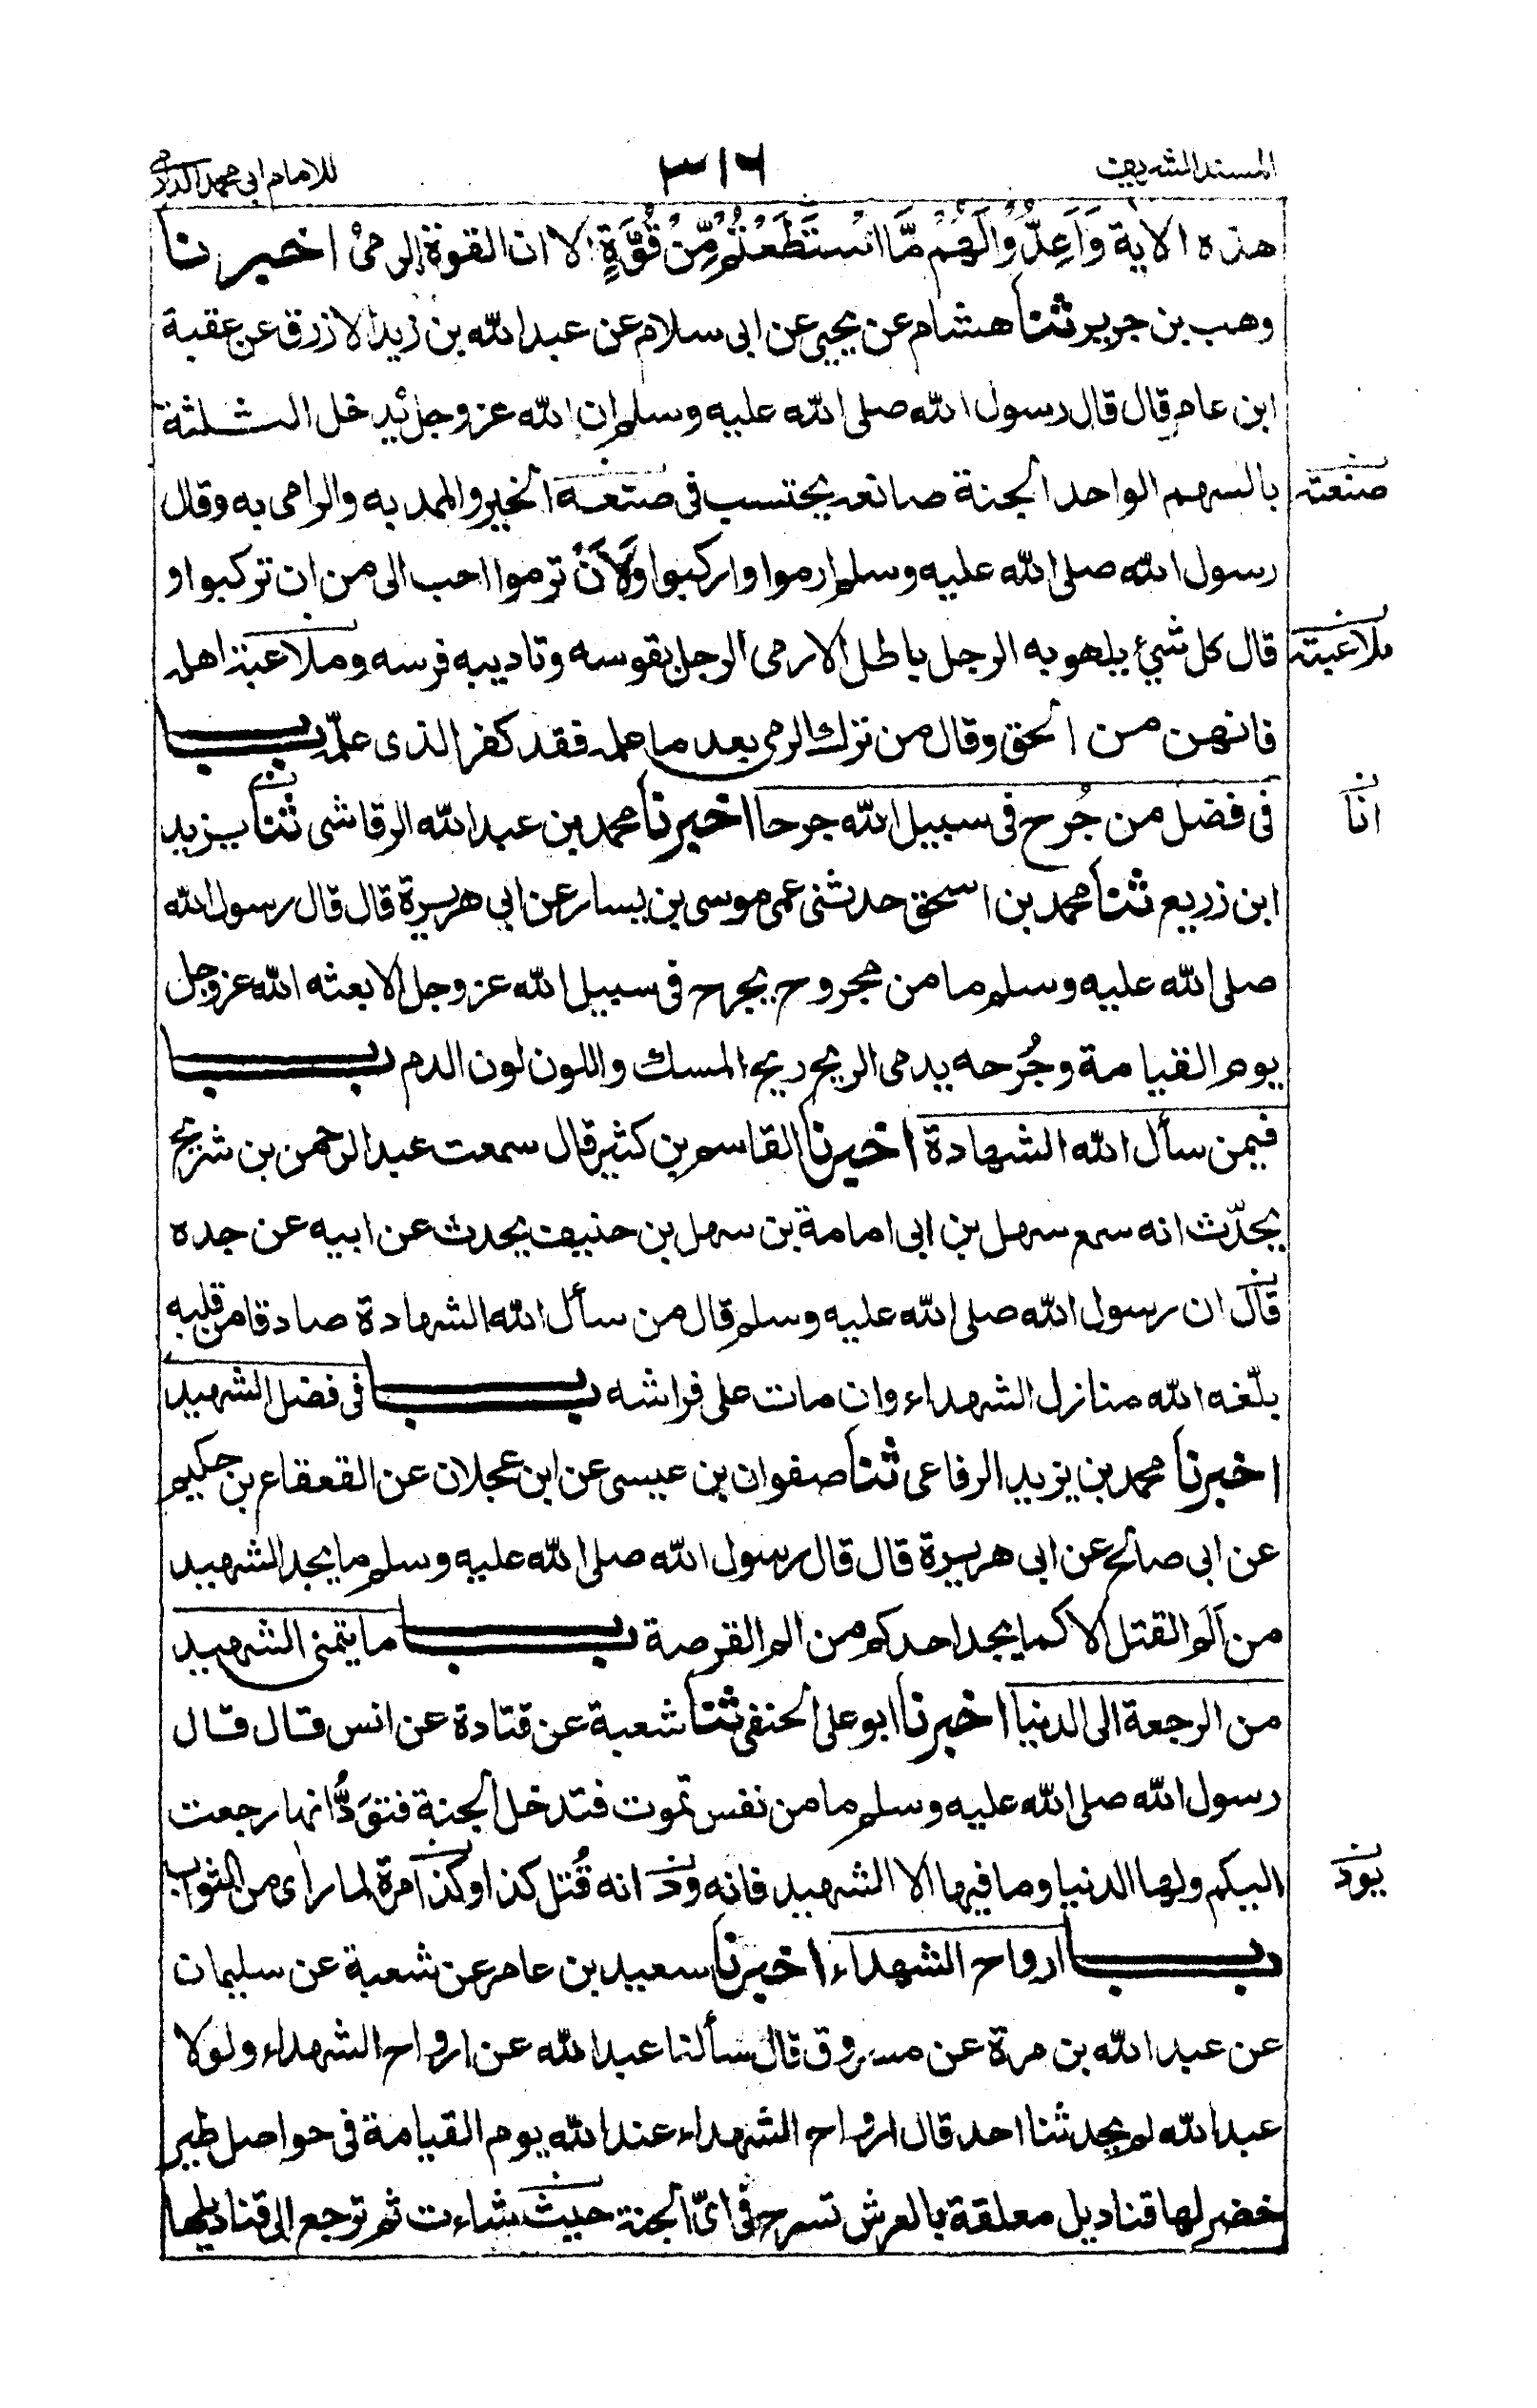 المسند الشريف
٣١٦
للامام ابی محمد الدارمی
هذه الآية وَاَعِدُّوْا لَهُمْ مَّا اسْتَطَعْتُمْ مِّنْ قُوَّةٍ الا ان القوة الرمی اخبرنا
وهب بن جرير ثنا هشام عن يحيى عن ابی سلام عن عبد الله بن زيد الازرق عن عقبة
ابن عامر قال قال رسول الله صلى الله عليه وسلم ان الله عز وجل يُدخل الثلثة
بالسهم الواحد الجنة صانعه يحتسب فی صنعه الخير والممد به والرامی به وقال
صنعته
رسول الله صلى الله عليه وسلم ارموا واركبوا وَلَاَنْ ترموا احب الی من ان تركبوا و
قال كل شیٔ يلهو به الرجل باطل الا رمی الرجل بقوسه وتاديبه فرسه وملاعبة اهله
ملاعبته
فانهن من الحق وقال من ترك الرمی بعد ما علمه فقد كفر الذی علّمه باب
فی فضل من جُرح فی سبيل الله جرحا اخبرنا محمد بن عبد الله الرقاشی ثنا يزيد
انا
ابن زريع ثنا محمد بن اسحق حدثنی عمی موسى بن يسار عن ابی هريرة قال قال رسول الله
صلى الله عليه وسلم ما من مجروح يجرح فی سبيل الله عز وجل الا بعثه الله عز وجل
يوم القيامة وجُرحه يدمی الريح ريح المسك واللون لون الدم باب
فيمن سأل الله الشهادة اخبرنا القاسم بن كثير قال سمعت عبد الرحمن بن شريح
يحدّث انه سمع سهل بن ابی امامة بن سهل بن حنيف يحدث عن ابيه عن جده
قال ان رسول الله صلى الله عليه وسلم قال من سأل الله الشهادة صادقا من قلبه
بلّغه الله منازل الشهداء وان مات على فراشه باب فی فضل الشهيد
اخبرنا محمد بن يزيد الرفاعی ثنا صفوان بن عيسى عن ابن عجلان عن القعقاع بن حكيم
عن ابی صالح عن ابی هريرة قال قال رسول الله صلى الله عليه وسلم ما يجد الشهيد
من اَلَم القتل الا كما يجد احدكم من الم القرصة باب ما يتمنى الشهيد
من الرجعة الى الدنيا اخبرنا ابو علی الحنفی ثنا شعبة عن قتادة عن انس قال قال
رسول الله صلى الله عليه وسلم ما من نفس تموت فتدخل الجنة فتوَدُّ انها رجعت
اليكم ولها الدنيا وما فيها الا الشهيد فانه ودّ انه قُتل كذا وكذا مرة لما رأى من الثواب
يود
باب ارواح الشهداء اخبرنا سعيد بن عامر عن شعبة عن سليمان
عن عبد الله بن مرة عن مسروق قال سألنا عبد الله عن ارواح الشهداء ولولا
عبد الله لم يحدثنا احد قال ارواح الشهداء عند الله يوم القيامة فی حواصل طير
خضر لها قناديل معلقة بالعرش تسرح فی ایّ الجنة حيث شاءت ثم ترجع الى قناديلها